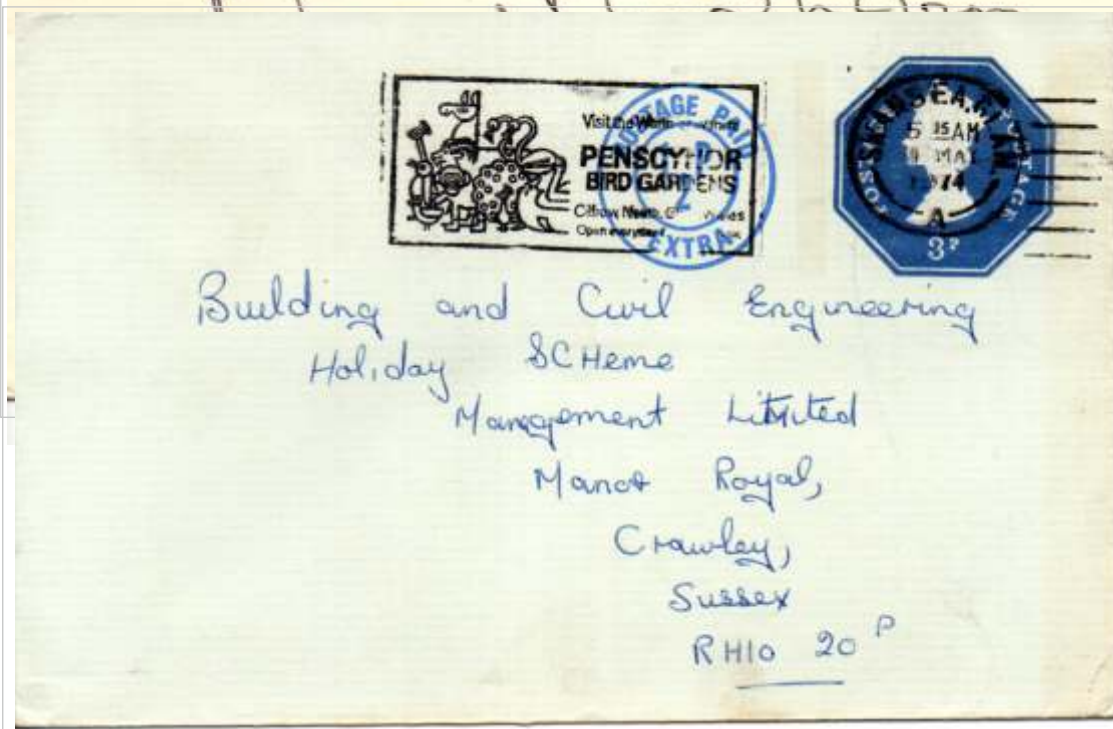 Visit the
PENSCYNOR
BIRD GARDENS
Cilfrew, Neath, Wales
Open every day
POSTAGE PAID
2
EXTRA
SWANSEA
5 15 AM
MAY
1974
A
POSTAGE
3P
Building and Civil Engineering
Holiday SCHeme
Management Limited
Manor Royal,
Crawley,
Sussex
RH10 20P